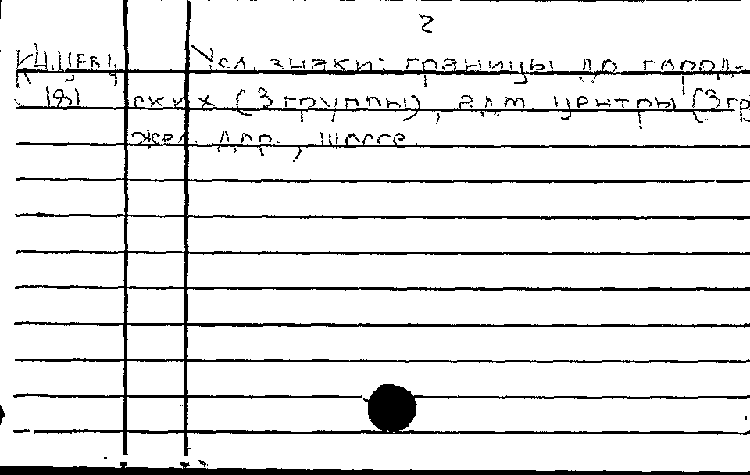 2
Усл. знаки: границы до город-
181 ских (3 группы), адм. центры (3 гр
жел. дор., шоссе